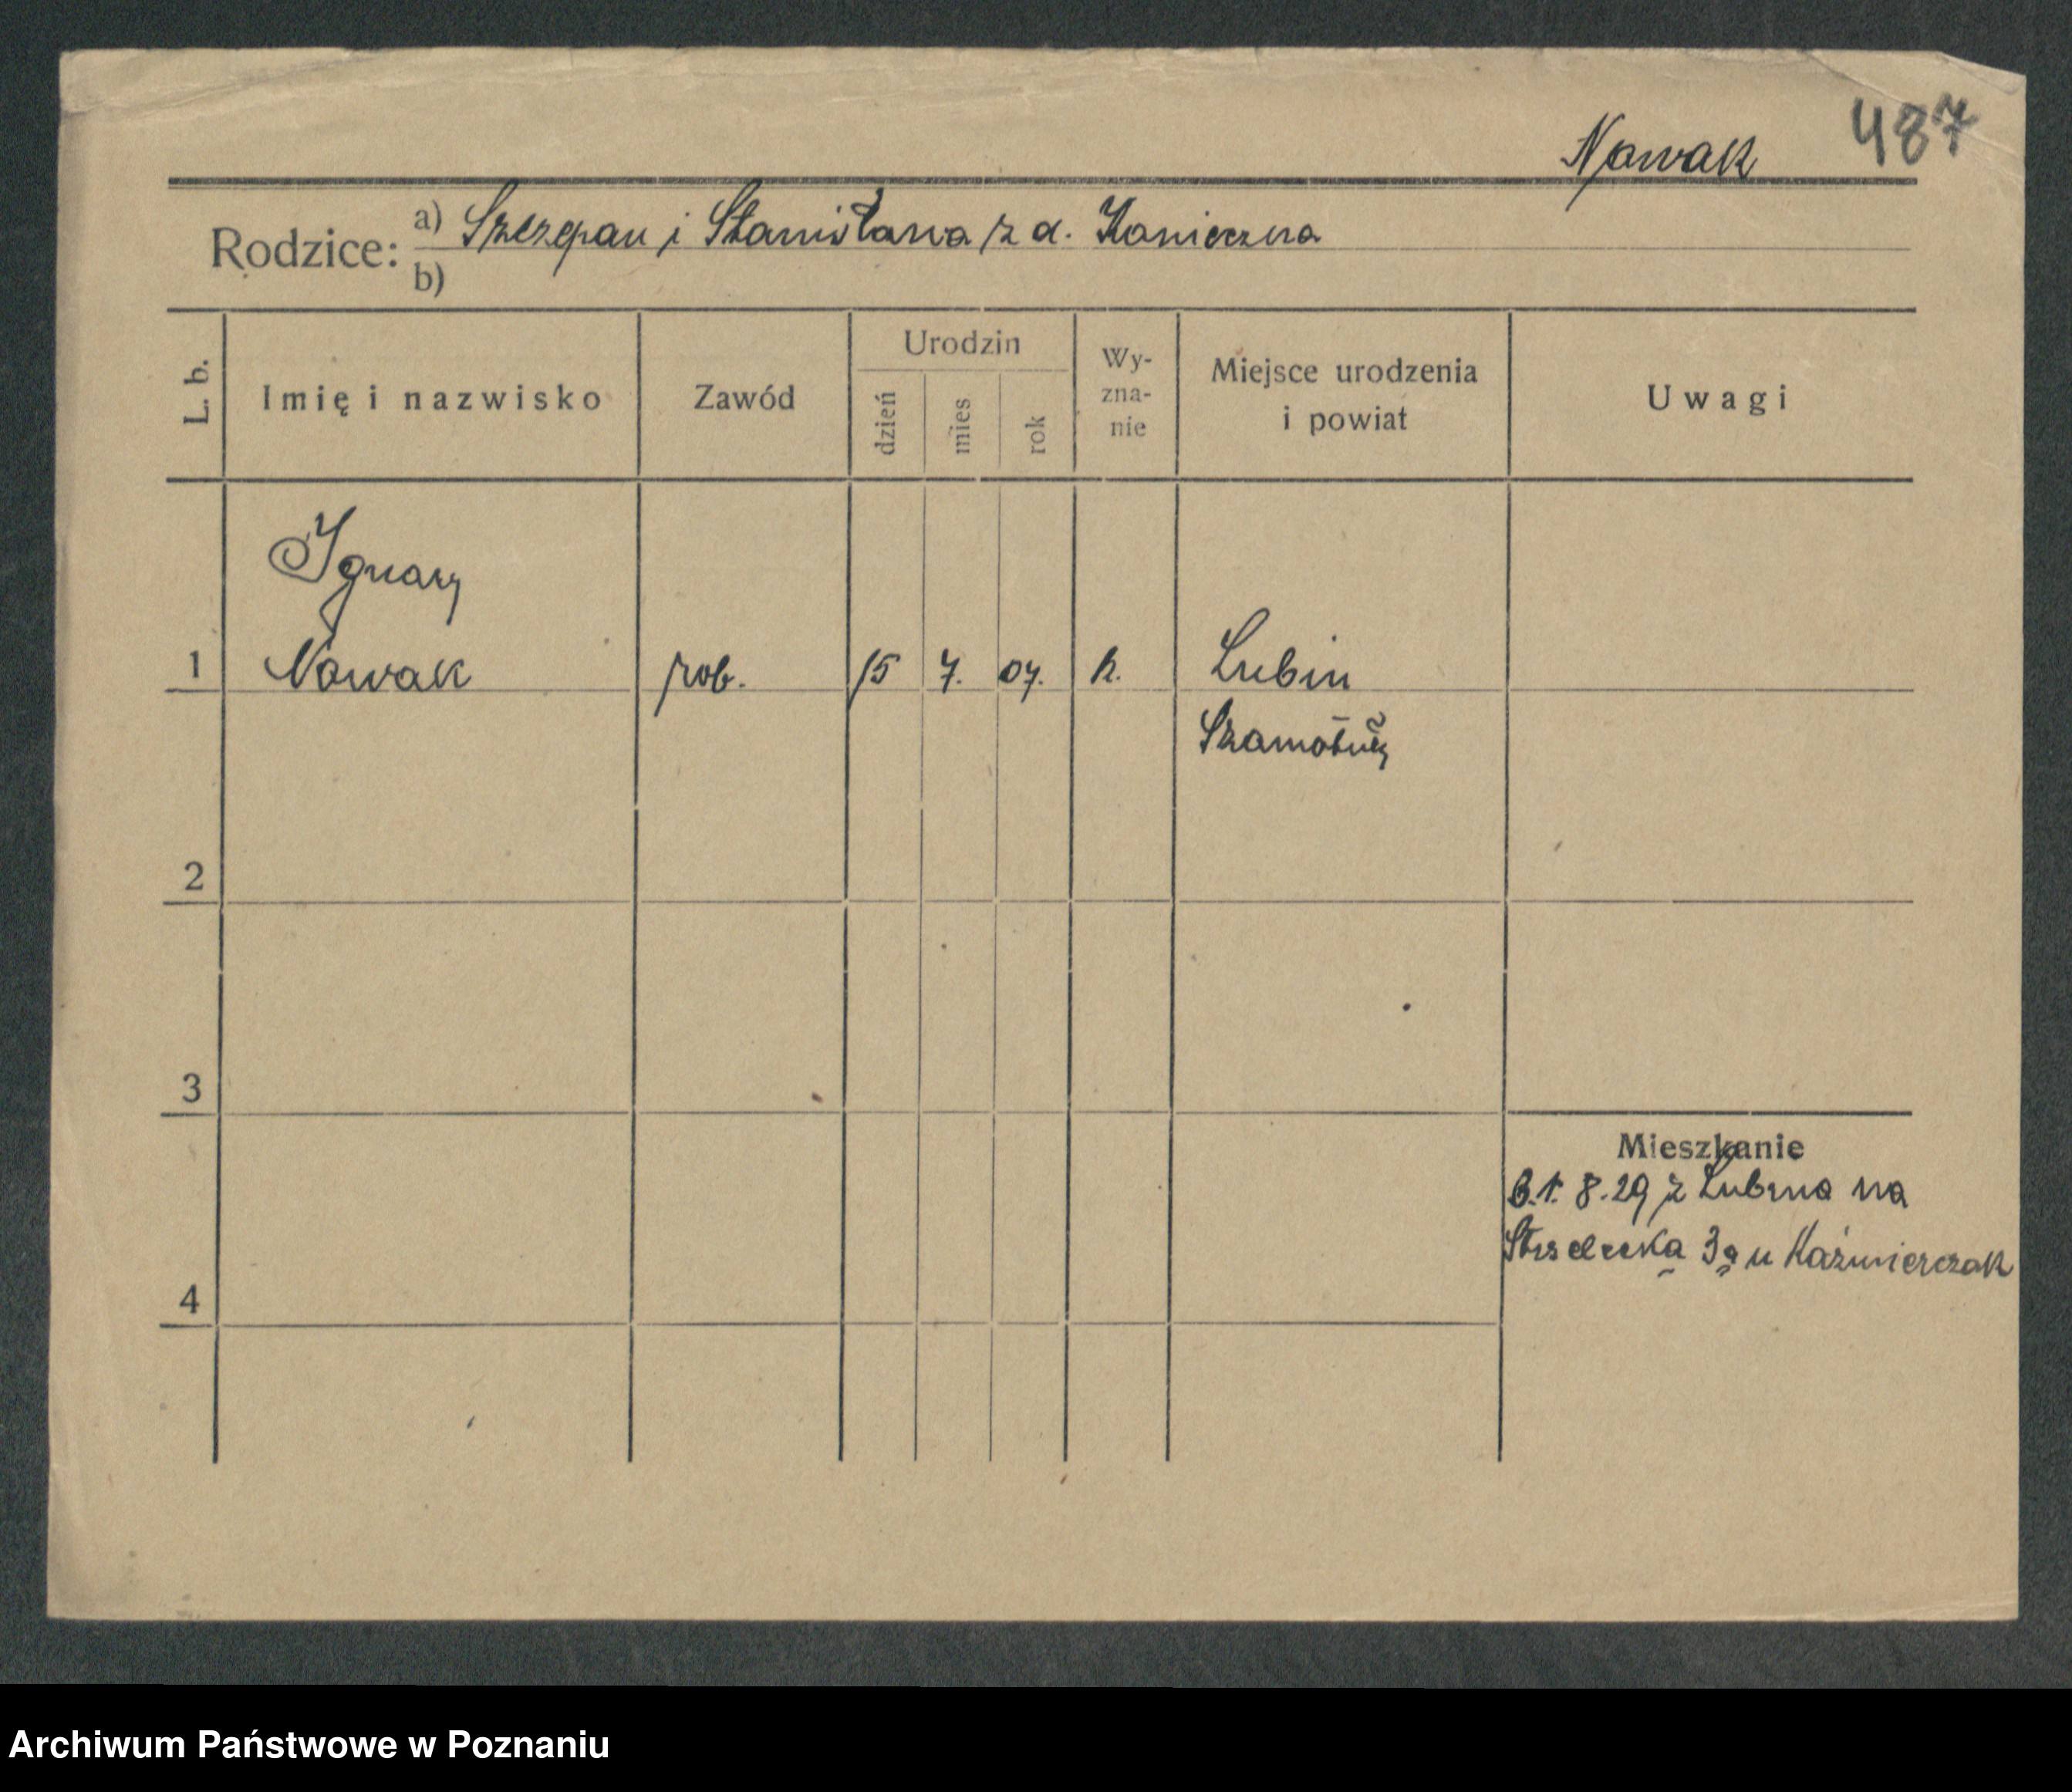 487
Nowak
Rodzice: a) Szczepan i Stanisława z d. Konieczna
b)
L. b.
Imię i nazwisko
Zawód
Urodzin
dzień
mies
rok
Wy-
zna-
nie
Miejsce urodzenia
i powiat
Uwagi
Ignacy
1 Nowak rob. 15 7. 07. k. Lubin
Szamotuły
2
3
Mieszkanie
1. 8. 29 z Lubina na
Strzelecka 3a u Kaźmierczak
4
Archiwum Państwowe w Poznaniu